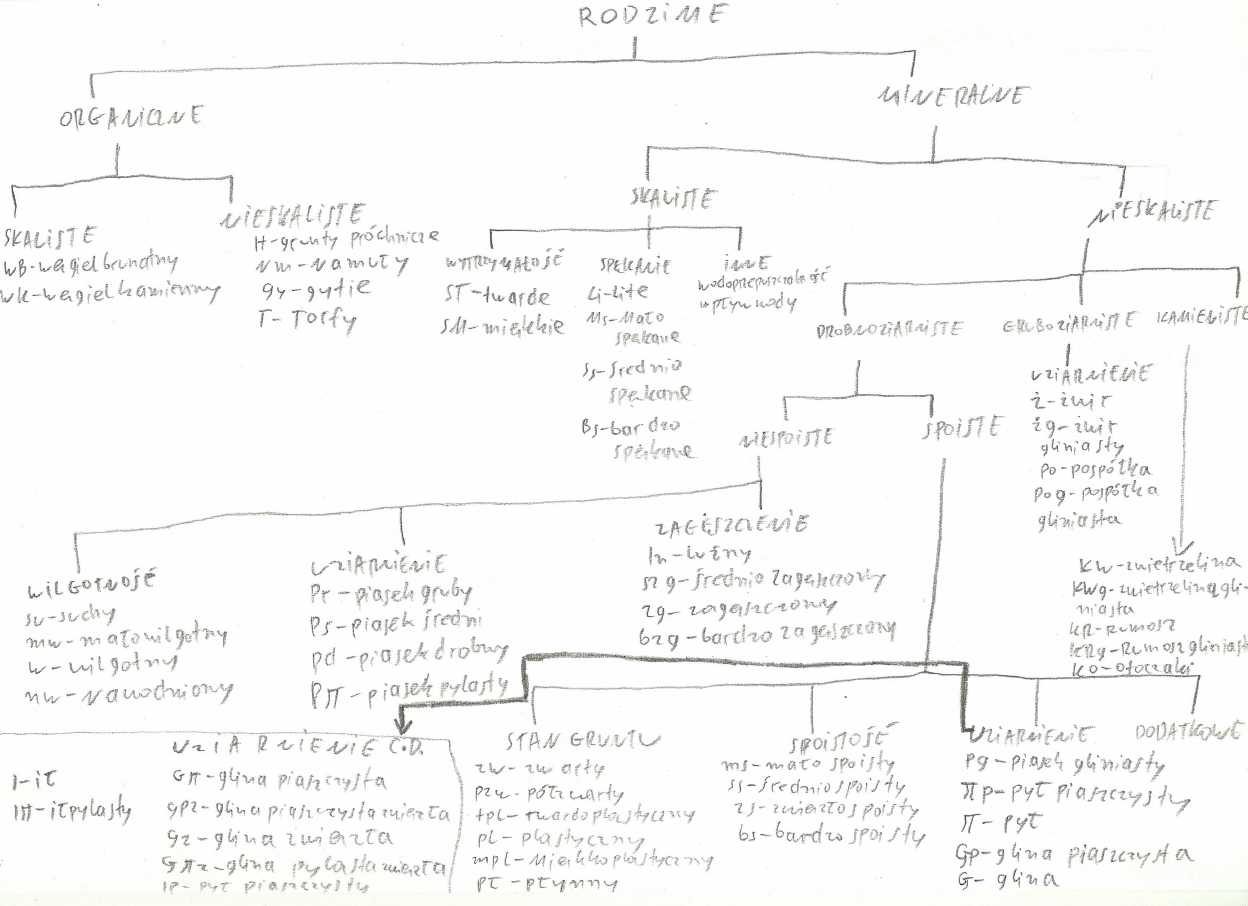 RODZIME
ORGANICZNE
MINERALNE
SKALISTE
WB-węgiel brunatny
WK-węgiel kamienny
NIESKALISTE
H-grunty próchnicze
Nm-Namuły
Gy-gytie
T-Torfy
SKALISTE
WYTRZYMAŁOŚĆ
ST-twarde
SM-miękkie
SPĘKANIE
Li-lite
Ms-Mało
spękane
Ss-średnio
spękane
Bs-bardzo
spękane
INNE
wodoprzepuszczalność
wpływ wody
NIESKALISTE
DROBNOZIARNISTE
GRUBOZIARNISTE
KAMIENISTE
UZIARNIENIE
Ż-żwir
Żg-żwir
gliniasty
Po-pospółka
Pog-pospółka
gliniasta
KW-zwietrzelina
KWg-zwietrzelina gli-
niasta
KR-Rumosz
KRg-Rumosz gliniasta
KO-Otoczaki
NIESPOISTE
SPOISTE
WILGOTNOŚĆ
su-suchy
mw-małowilgotny
w-wilgotny
nw-Nawodniony
UZIARNIENIE
Pr-piasek gruby
Ps-piasek średni
Pd-piasek drobny
Pπ-piasek pylasty
ZAGĘSZCZENIE
ln-luźny
szg-średnio zagęszczony
zg-zagęszczony
bzg-bardzo zagęszczony
I-ił
Iπ-ił pylasty
UZIARNIENIE C.D.
Gπ-glina piaszczysta
Gpz-glina piaszczysta zwięzła
Gz-glina zwięzła
Gπz-glina pylasta zwięzła
Ip-pył piaszczysty
STAN GRUNTU
zw-zwarty
pzw-półzwarty
tpl-twardoplastyczny
pl-plastyczny
mpl-Miękkoplastyczny
pł-płynny
SPOISTOŚĆ
ms-mało spoisty
ss-średnio spoisty
zs-zwięzło spoisty
bs-bardzo spoisty
UZIARNIENIE
Pg-piasek gliniasty
πp-pył piaszczysty
π-pył
Gp-glina piaszczysta
G-glina
DODATKOWE